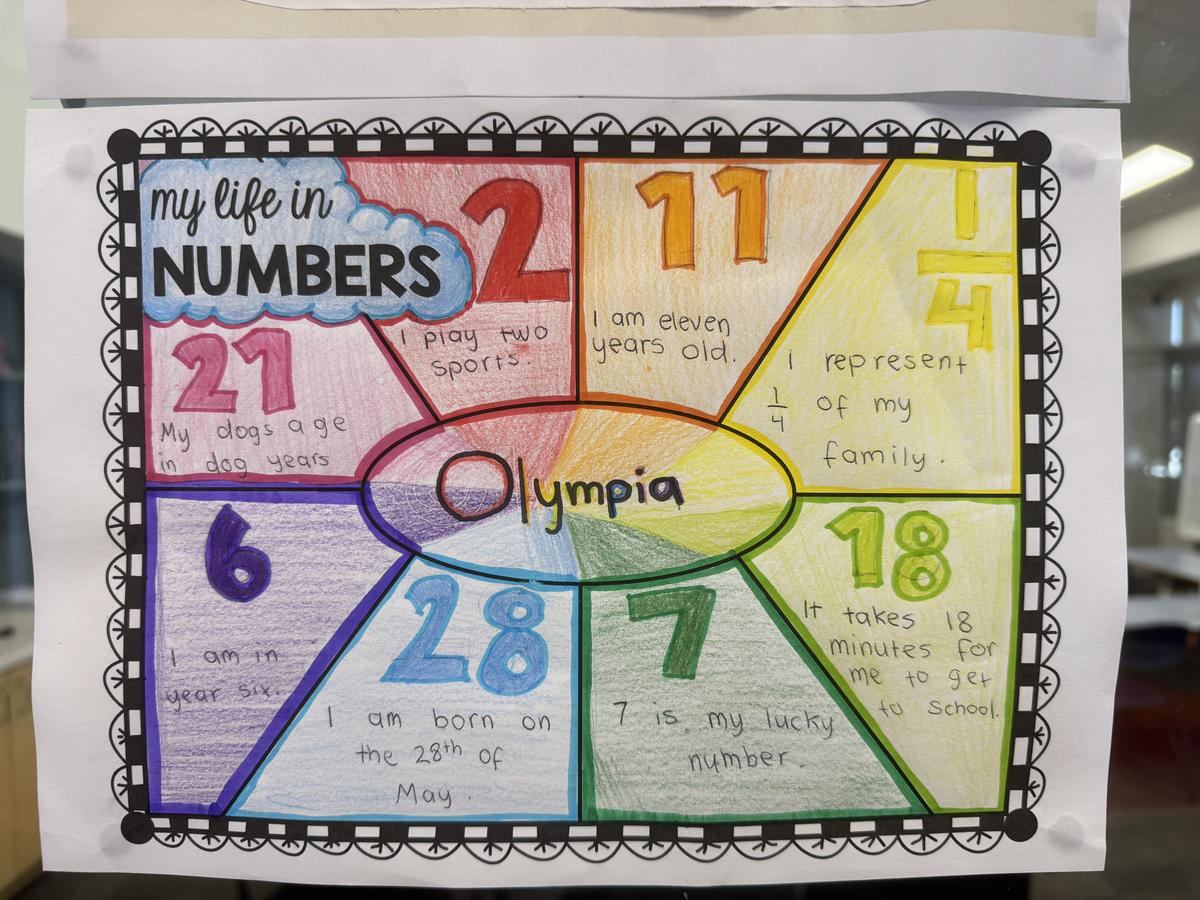 my life in
NUMBERS
2
I play two
sports.
11
I am eleven
years old.
1
4
I represent
1/4 of my
family.
21
My dogs age
in dog years
Olympia
6
I am in
year six.
28
I am born on
the 28th of
May.
7
7 is my lucky
number.
18
It takes 18
minutes for
me to get
to school.